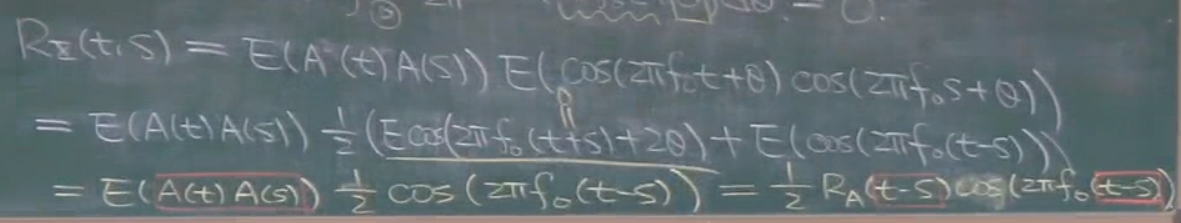 = 0.
R_X(t,s) = E(A(t)A(s)) E(cos(2πf₀t+θ) cos(2πf₀s+θ))
0
= E(A(t)A(s)) ½(E cos(2πf₀(t+s)+2θ) + E(cos(2πf₀(t-s))))
= E(A(t)A(s)) ½ cos(2πf₀(t-s)) = ½ R_A(t-s) cos(2πf₀(t-s))